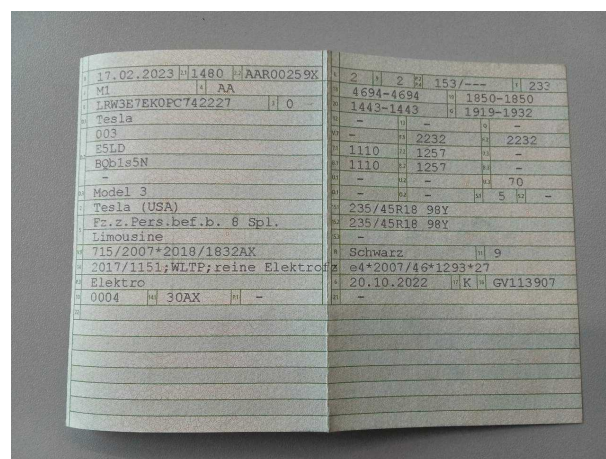 17.02.2023 1480 AAR00259X
M1 AA
LRW3E7EK0PC742227 0
Tesla
003
E5LD
BQb1s5N
-
Model 3
Tesla (USA)
Fz.z.Pers.bef.b. 8 Spl.
Limousine
715/2007*2018/1832AX
2017/1151;WLTP;reine Elektrofz
Elektro
0004 30AX -
2 2 153/--- 233
4694-4694 1850-1850
1443-1443 1919-1932
- - -
- 2232 2232
1110 1257 -
1110 1257 -
- - 70
- - 5 -
235/45R18 98Y
235/45R18 98Y
-
Schwarz 9
e4*2007/46*1293*27
20.10.2022 K GV113907
-